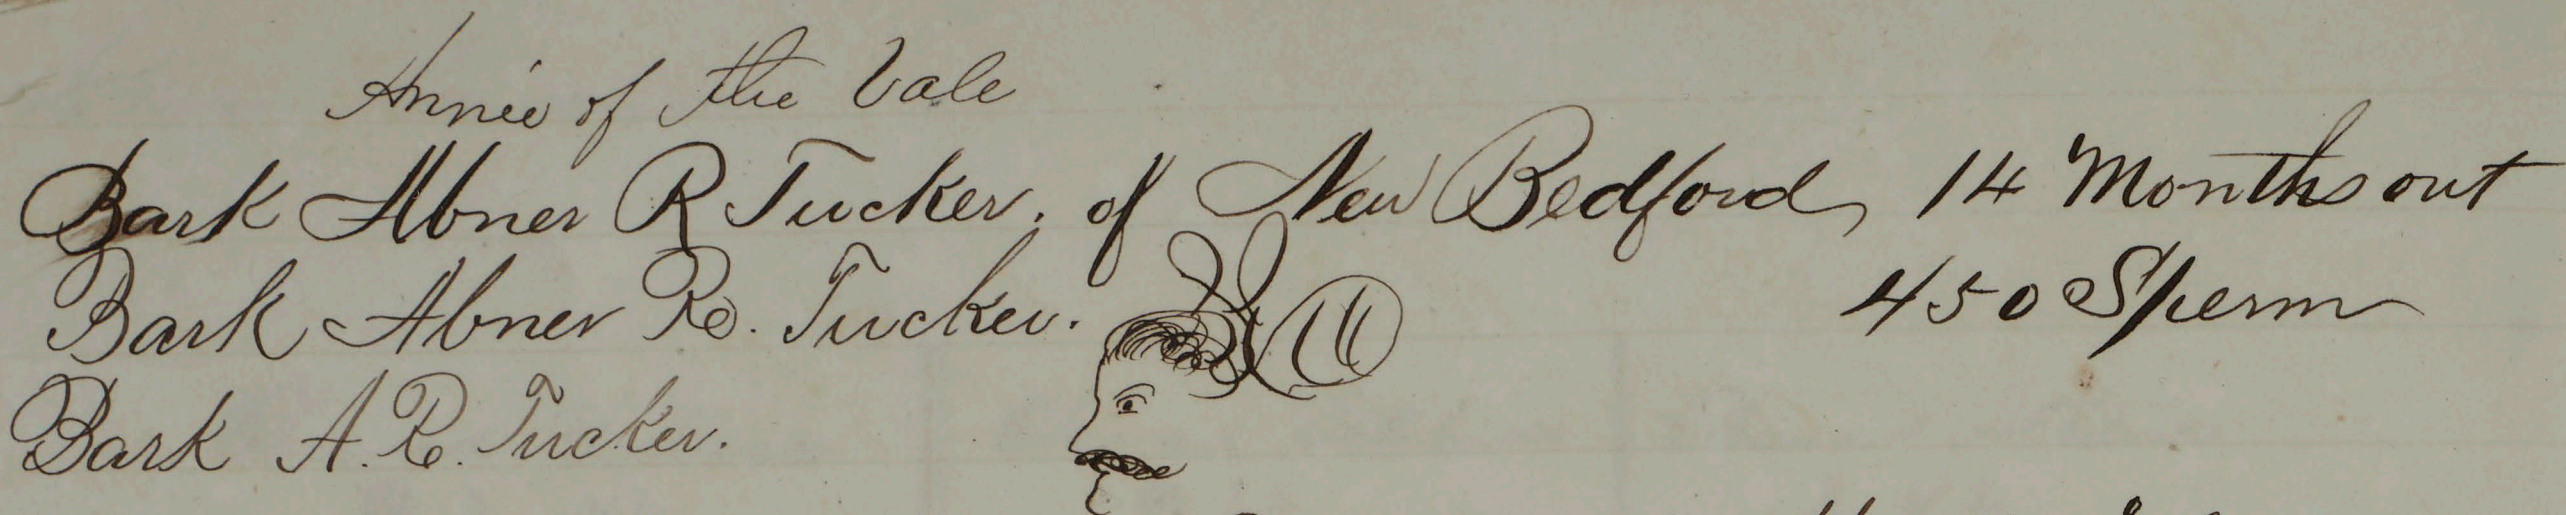 Annie of the Vale
Bark Abner R Tucker. of New Bedford, 14 Months out
450 Sperm
Bark Abner R. Tucker.
Bark A. R. Tucker.